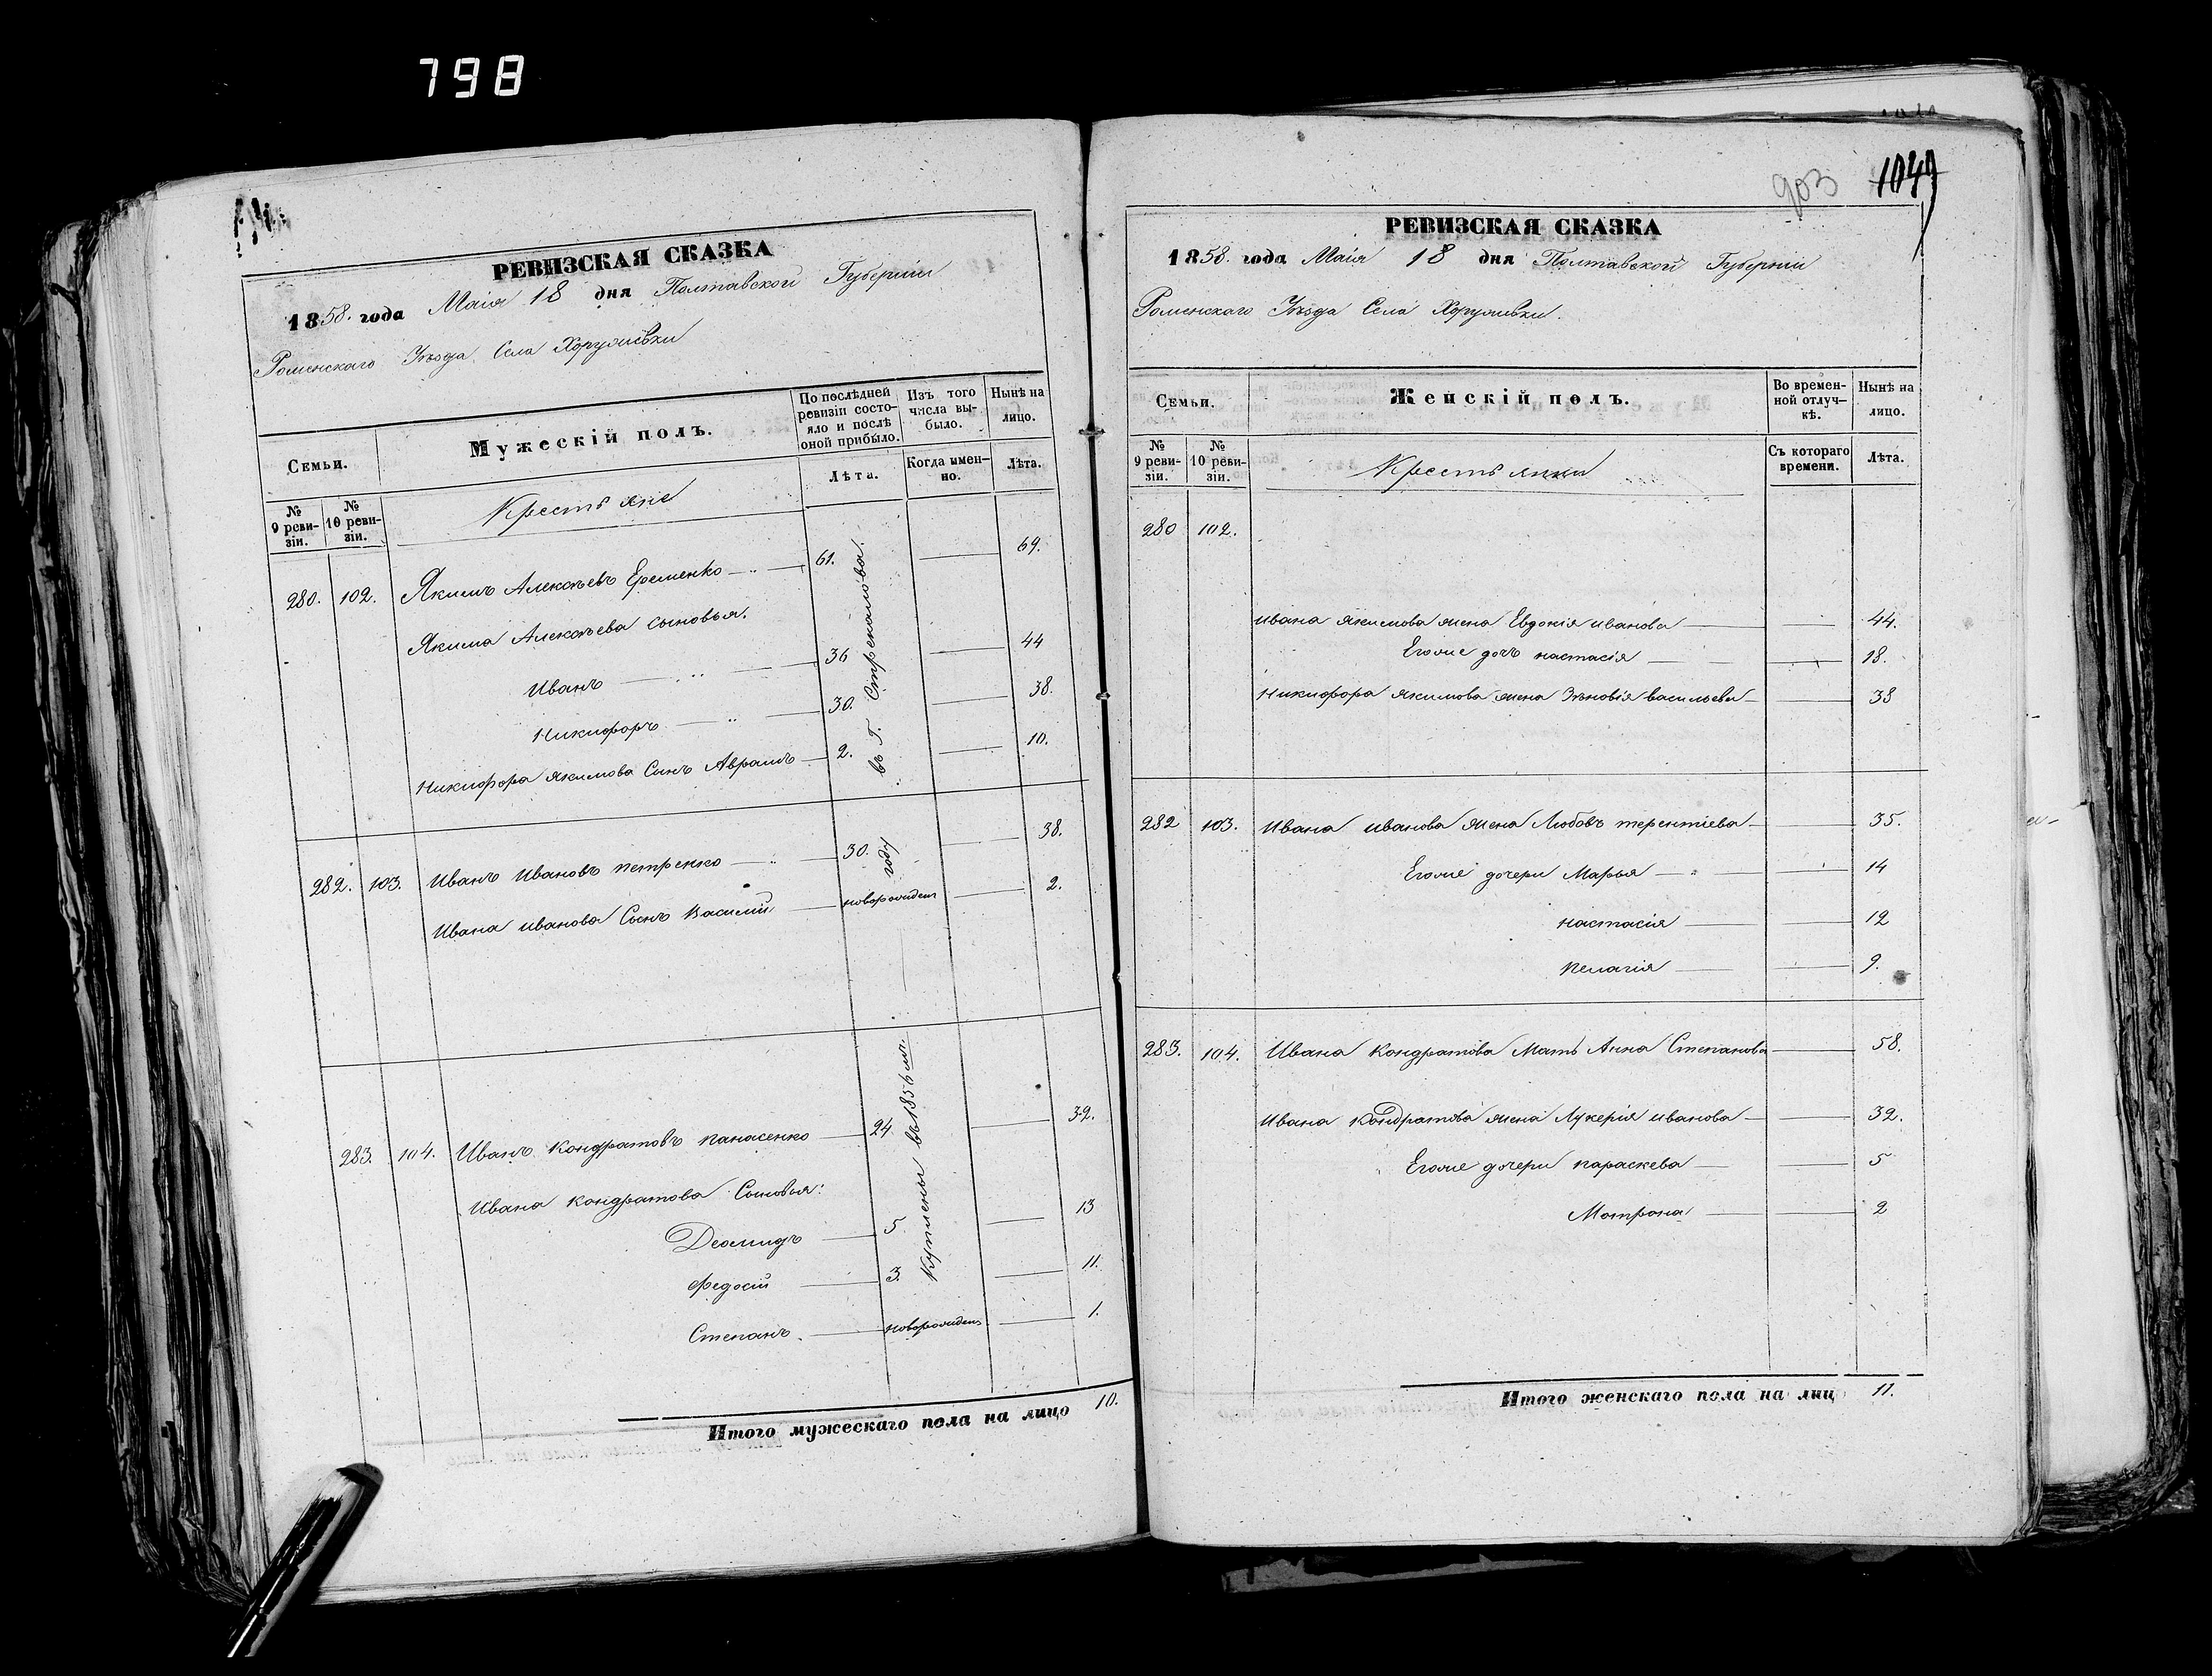 798
РЕВИЗСКАЯ СКАЗКА
1858. года Маія 18 дня Полтавской Губерніи
Роменскаго Уѣзда Села Хоружівки
Семьи.
Мужескій полъ.
По послѣдней ревизіи состояло и послѣ оной прибыло.
Изъ того числа выбыло.
Нынѣ на лицо.
№ 9 ревизіи.
№ 10 ревизіи.
Крестьяне
Лѣта.
Когда именно.
Лѣта.
280. 102. Якимъ Алексѣевъ Еременко 61. 69.
Якима Алексѣева сыновья.
Иванъ 36 44
Никифоръ 30. 38.
Никифора Якимова Сынъ Аврамъ 2. 10.
282. 103. Иванъ Ивановъ Петренко 30. 38.
Ивана Иванова Сынъ Василій новорожден 2.
283. 104. Иванъ Кондратовъ Панасенко 24. 32.
Ивана Кондратова Сыновья:
Деомидъ 5. 13
Федосій 3. 11.
Степанъ. новорожден 1.
Куплены въ 1856 м. году въ Г. Стрекалова.
Итого мужескаго пола на лицо 10.
903 1049
РЕВИЗСКАЯ СКАЗКА
1858. года Маія 18 дня Полтавской Губерніи
Роменскаго Уѣзда Села Хоружівки.
Семьи.
Женскій полъ.
Во временной отлучкѣ.
Нынѣ на лицо.
№ 9 ревизіи.
№ 10 ревизіи.
Крестьянки
Съ котораго времени.
Лѣта.
280 102.
Ивана Якимова жена Евдокія Иванова 44.
Егоже дочь Настасія 18.
Никифора Якимова жена Зѣновія Васильева 38
282 103. Ивана Иванова жена Любовъ Терентіева 35.
Егоже дочери Марья 14
Настасія 12
Пелагія 9.
283. 104. Ивана Кондратова Мать Анна Степанова 58.
Ивана Кондратова жена Лукерія Иванова 32.
Егоже дочери Параскева 5
Мотрона 2
Итого женскаго пола на лиц 11.